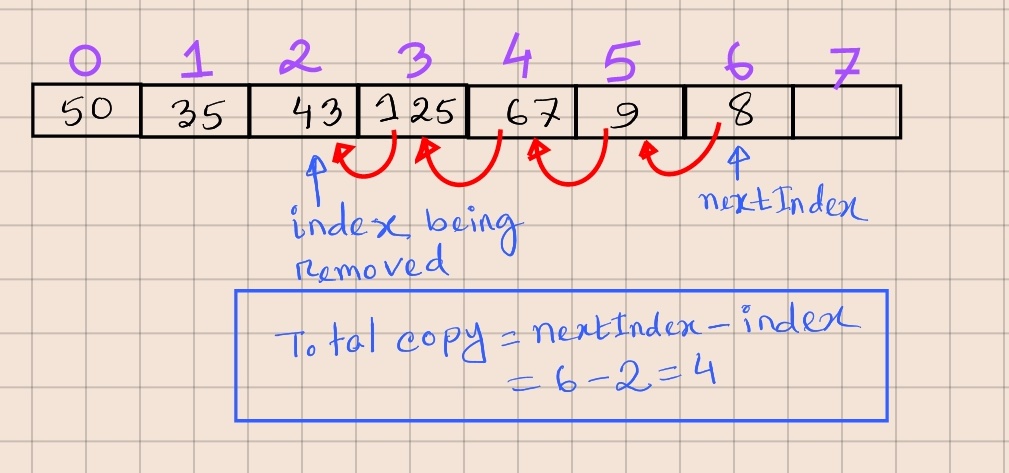 0 1 2 3 4 5 6 7
50 35 43 125 67 9 8
nextIndex
index being
removed
Total copy = nextIndex - index
= 6 - 2 = 4